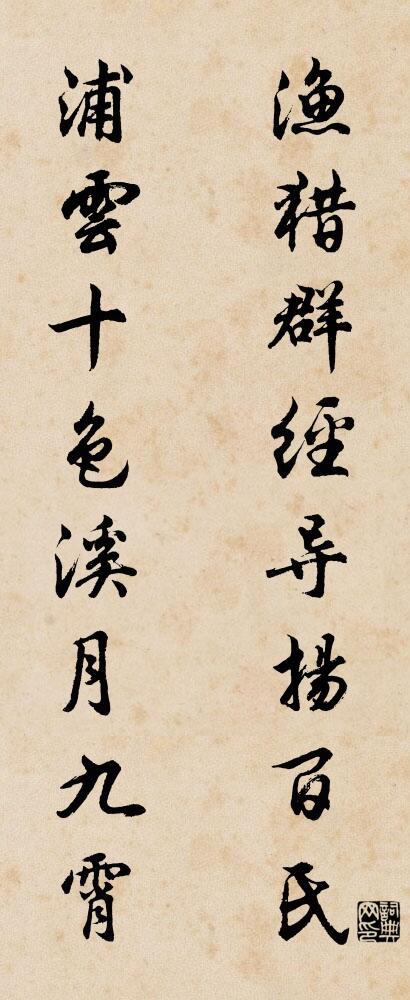 渔猎群經导揚百氏
浦雲十色溪月九霄
詞典网印